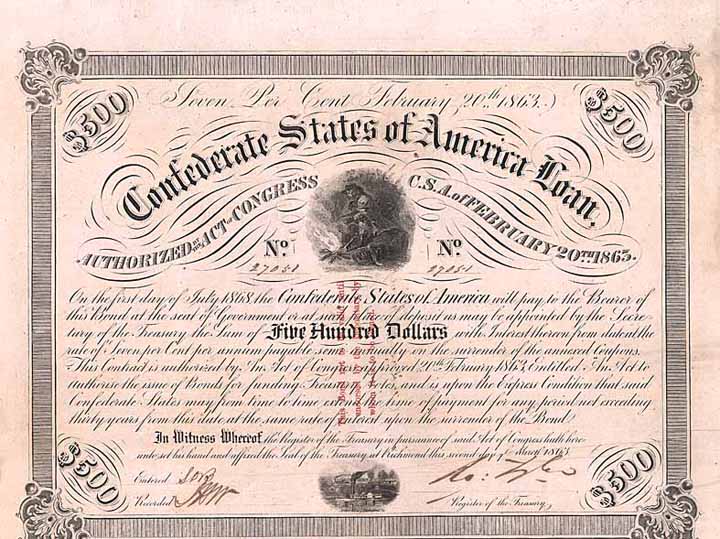 $500
$500
Seven Per Cent February 20th 1863.
Confederate States of America Loan.
AUTHORIZED BY ACT OF CONGRESS C.S.A. of FEBRUARY 20TH 1863.
No. No.
27051 27051
On the first day of July 1868 the Confederate States of America will pay to the Bearer of
this Bond at the seat of Government or at such place of deposit as may be appointed by the Secre-
tary of the Treasury the Sum of Five Hundred Dollars with Interest thereon from date at the
rate of Seven per Cent per annum payable semi annually on the surrender of the annexed Coupons.
This Contract is authorized by An Act of Congress approved 20th February 1863 Entitled An Act to
authorize the issue of Bonds for funding Treasury Notes, and is upon the Express Condition that said
Confederate States may from time to time extend the time of payment for any period not exceeding
thirty years from this date at the same rate of interest upon the surrender of the Bond.
In Witness Whereof the Register of the Treasury in pursuance of said Act of Congress hath here-
unto set his hand and affixed the Seal of the Treasury at Richmond this second day of March 1863
Entered
Recorded
Register of the Treasury
$500
$500